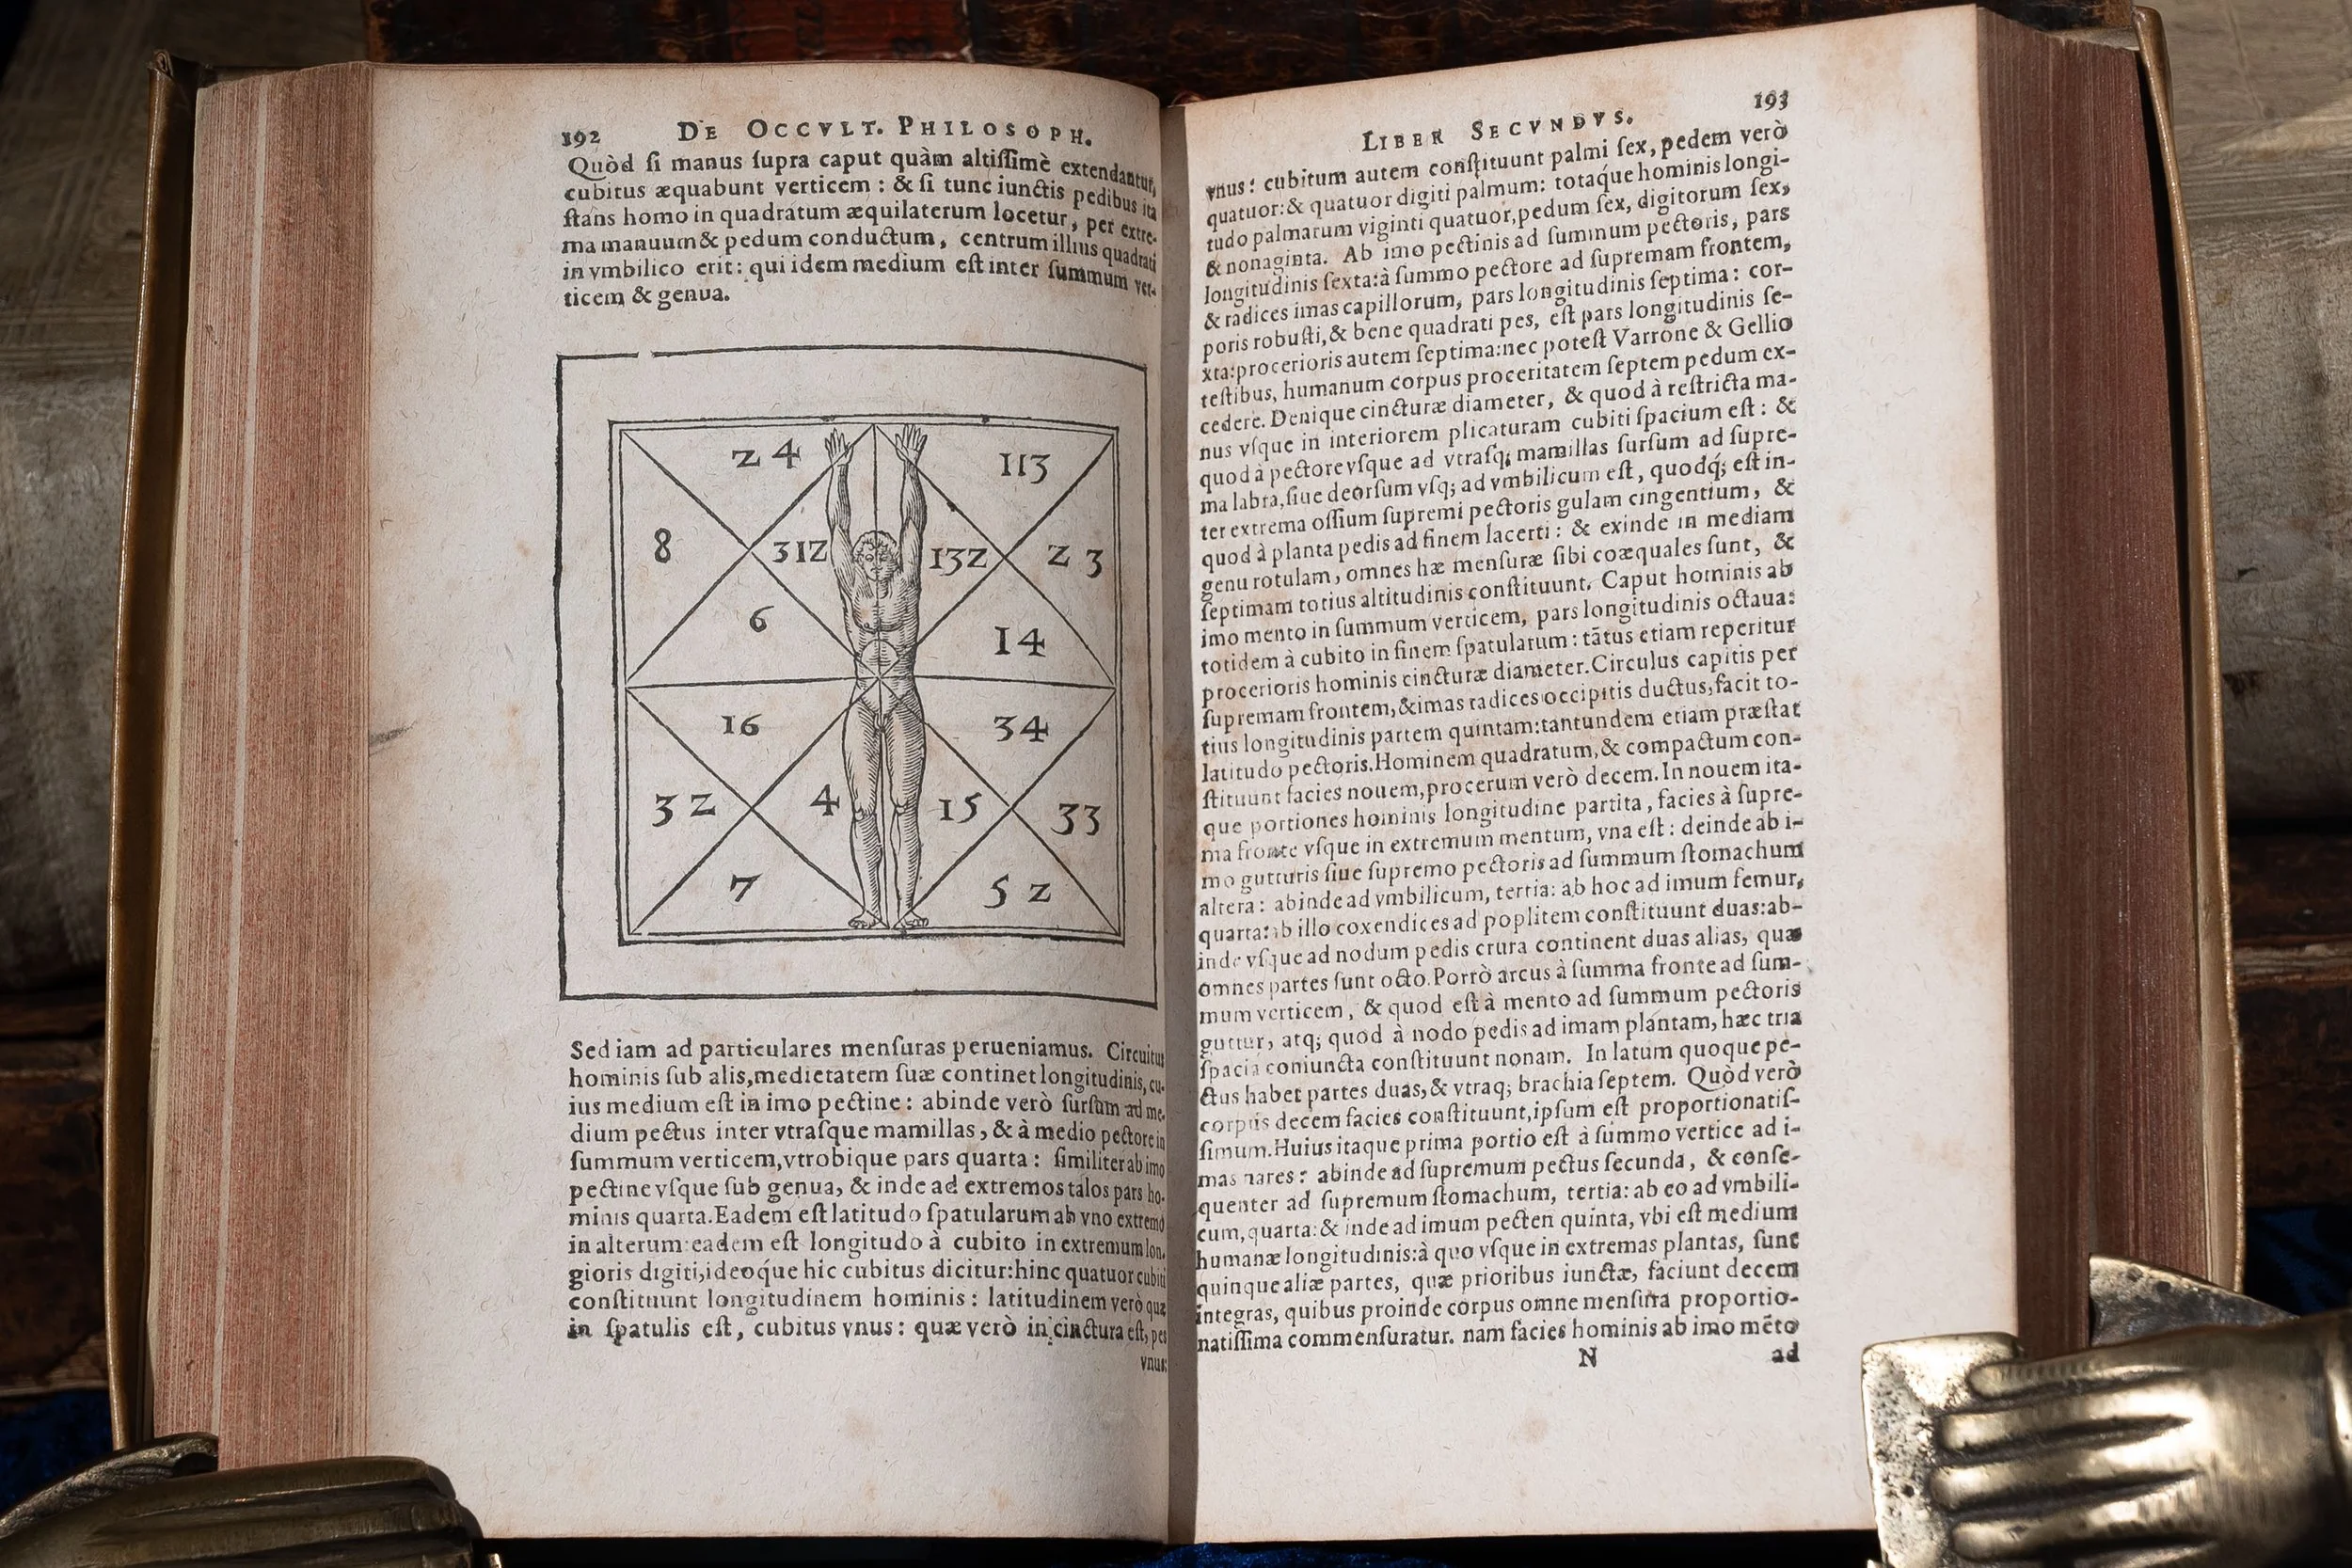 192 DE OCCVLT. PHILOSOPH.
Quòd ſi manus ſupra caput quàm altiſſimè extendantur,
cubitus æquabunt verticem : & ſi tunc iunctis pedibus ita
ſtans homo in quadratum æquilaterum locetur, per extre-
ma manuum & pedum conductum, centrum illius quadrati
in vmbilico erit: qui idem medium eſt inter ſummum ver-
ticem & genua.
24 113
8 312 132 23
6 14
16 34
32 4 15 33
7 52
Sed iam ad particulares menſuras perueniamus. Circuitus
hominis ſub alis, medietatem ſuæ continet longitudinis, cu-
ius medium eſt in imo pectine: abinde verò ſurſum ad me-
dium pectus inter vtraſque mamillas, & à medio pectore in
ſummum verticem, vtrobique pars quarta: ſimiliter ab imo
pectine vſque ſub genua, & inde ad extremos talos pars ho-
minis quarta. Eadem eſt latitudo ſpatularum ab vno extremo
in alterum: eadem eſt longitudo à cubito in extremum lon-
gioris digiti, ideoq́ue hic cubitus dicitur: hinc quatuor cubiti
conſtituunt longitudinem hominis: latitudinem verò quæ
in ſpatulis eſt, cubitus vnus: quæ verò in cinctura eſt, pes
vnus:
LIBER SECVNDVS. 193
vnus: cubitum autem conſtituunt palmi ſex, pedem verò
quatuor: & quatuor digiti palmum: totaq́ue hominis longi-
tudo palmarum viginti quatuor, pedum ſex, digitorum ſex,
& nonaginta. Ab imo pectinis ad ſummum pectoris, pars
longitudinis ſexta: à ſummo pectore ad ſupremam frontem,
& radices imas capillorum, pars longitudinis ſeptima: cor-
poris robuſti, & bene quadrati pes, eſt pars longitudinis ſe-
xta: procerioris autem ſeptima: nec poteſt Varrone & Gellio
teſtibus, humanum corpus proceritatem ſeptem pedum ex-
cedere. Denique cincturæ diameter, & quod à reſtricta ma-
nus vſque in interiorem plicaturam cubiti ſpacium eſt: &
quod à pectore vſque ad vtraſq; mamillas ſurſum ad ſupre-
ma labra, ſiue deorſum vſq; ad vmbilicum eſt, quodq́; eſt in-
ter extrema oſſium ſupremi pectoris gulam cingentium, &
quod à planta pedis ad finem lacerti: & exinde in mediam
genu rotulam, omnes hæ menſuræ ſibi coæquales ſunt, &
ſeptimam totius altitudinis conſtituunt. Caput hominis ab
imo mento in ſummum verticem, pars longitudinis octaua:
totidem à cubito in finem ſpatularum: tātus etiam reperitur
procerioris hominis cincturæ diameter. Circulus capitis per
ſupremam frontem, & imas radices occipitis ductus, facit to-
tius longitudinis partem quintam: tantundem etiam præſtat
latitudo pectoris. Hominem quadratum, & compactum con-
ſtituunt facies nouem, procerum verò decem. In nouem ita-
que portiones hominis longitudine partita, facies à ſupre-
ma fronte vſque in extremum mentum, vna eſt: deinde ab i-
mo gutturis ſiue ſupremo pectoris ad ſummum ſtomachum
altera: abinde ad vmbilicum, tertia: ab hoc ad imum femur,
quarta: ab illo coxendices ad poplitem conſtituunt duas: ab-
inde vſque ad nodum pedis crura continent duas alias, quæ
omnes partes ſunt octo. Porrò arcus à ſumma fronte ad ſum-
mum verticem, & quod eſt à mento ad ſummum pectoris
guttur, atq; quod à nodo pedis ad imam plantam, hæc tria
ſpacia coniuncta conſtituunt nonam. In latum quoque pe-
ctus habet partes duas, & vtraq; brachia ſeptem. Quòd verò
corpus decem facies conſtituunt, ipſum eſt proportionatiſ-
ſimum. Huius itaque prima portio eſt à ſummo vertice ad i-
mas nares: abinde ad ſupremum pectus ſecunda, & conſe-
quenter ad ſupremum ſtomachum, tertia: ab eo ad vmbili-
cum, quarta: & inde ad imum pecten quinta, vbi eſt medium
humanæ longitudinis: à quo vſque in extremas plantas, ſunt
quinque aliæ partes, quæ prioribus iunctæ, faciunt decem
integras, quibus proinde corpus omne menſura proportio-
natiſſima commenſuratur. nam facies hominis ab imo mēto
N ad